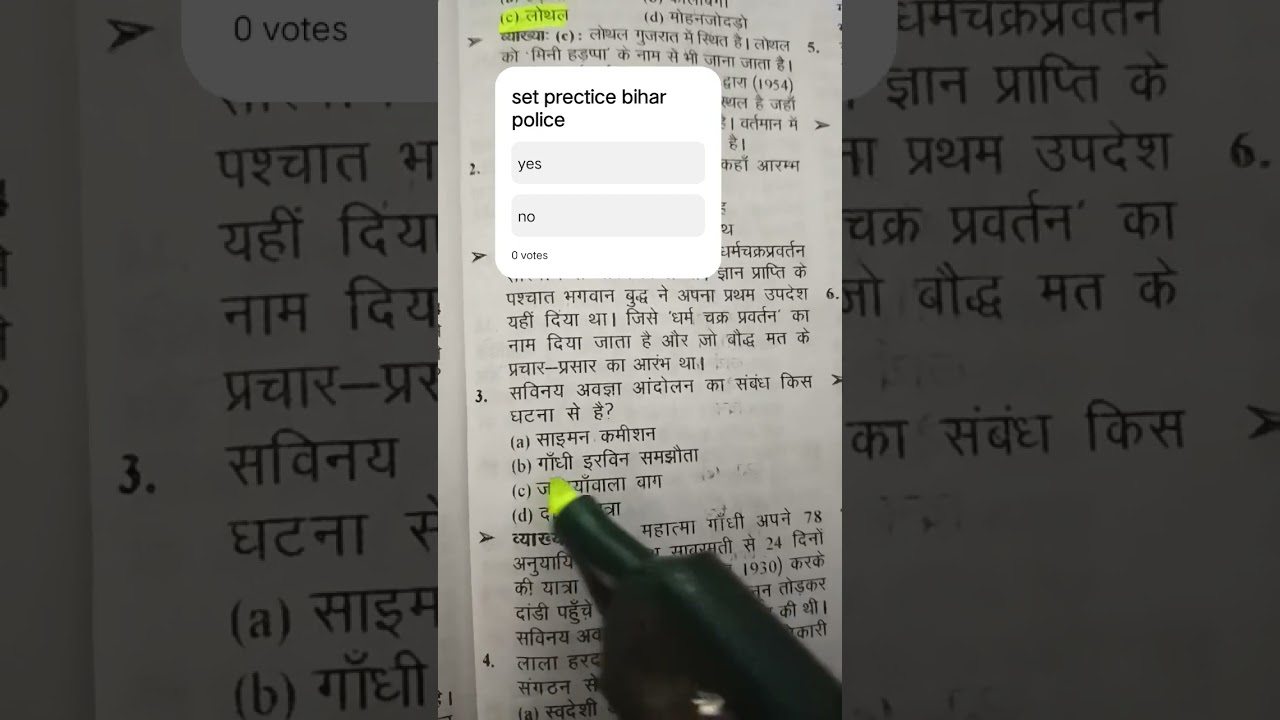 0 votes
(c) लोथल
(d) मोहनजोदड़ो
व्याख्याः (c) : लोथल गुजरात में स्थित है। लोथल
को 'मिनी हड़प्पा' के नाम से भी जाना जाता है।
द्वारा (1954)
स्थल है जहाँ
है। वर्तमान में
है।
set prectice bihar
police
yes
no
0 votes
2.
कहाँ आरम्भ
थ
धर्मचक्रप्रवर्तन
ज्ञान प्राप्ति के
पश्चात भगवान बुद्ध ने अपना प्रथम उपदेश
यहीं दिया था। जिसे 'धर्म चक्र प्रवर्तन' का
नाम दिया जाता है और जो बौद्ध मत के
प्रचार–प्रसार का आरंभ था।
3. सविनय अवज्ञा आंदोलन का संबंध किस
घटना से है?
(a) साइमन कमीशन
(b) गाँधी इरविन समझौता
(c) याँवाला बाग
(d)
महात्मा गाँधी अपने 78
अनुयायि साबरमती से 24 दिनों
की यात्रा 1930) करके
दांडी पहुँचे तोड़कर
सविनय अव की थी।
4. लाला हरद
संगठन से
(a) स्वदेशी
5.
6.
धर्मचक्रप्रवर्तन
ज्ञान प्राप्ति के
पश्चात भ
प्रथम उपदेश
6.
यहीं दिया
चक्र प्रवर्तन' का
नाम दिय
जो बौद्ध मत के
प्रचार–प्रस
3. सविनय
का संबंध किस
घटना से
(a) साइम
(b) गाँधी